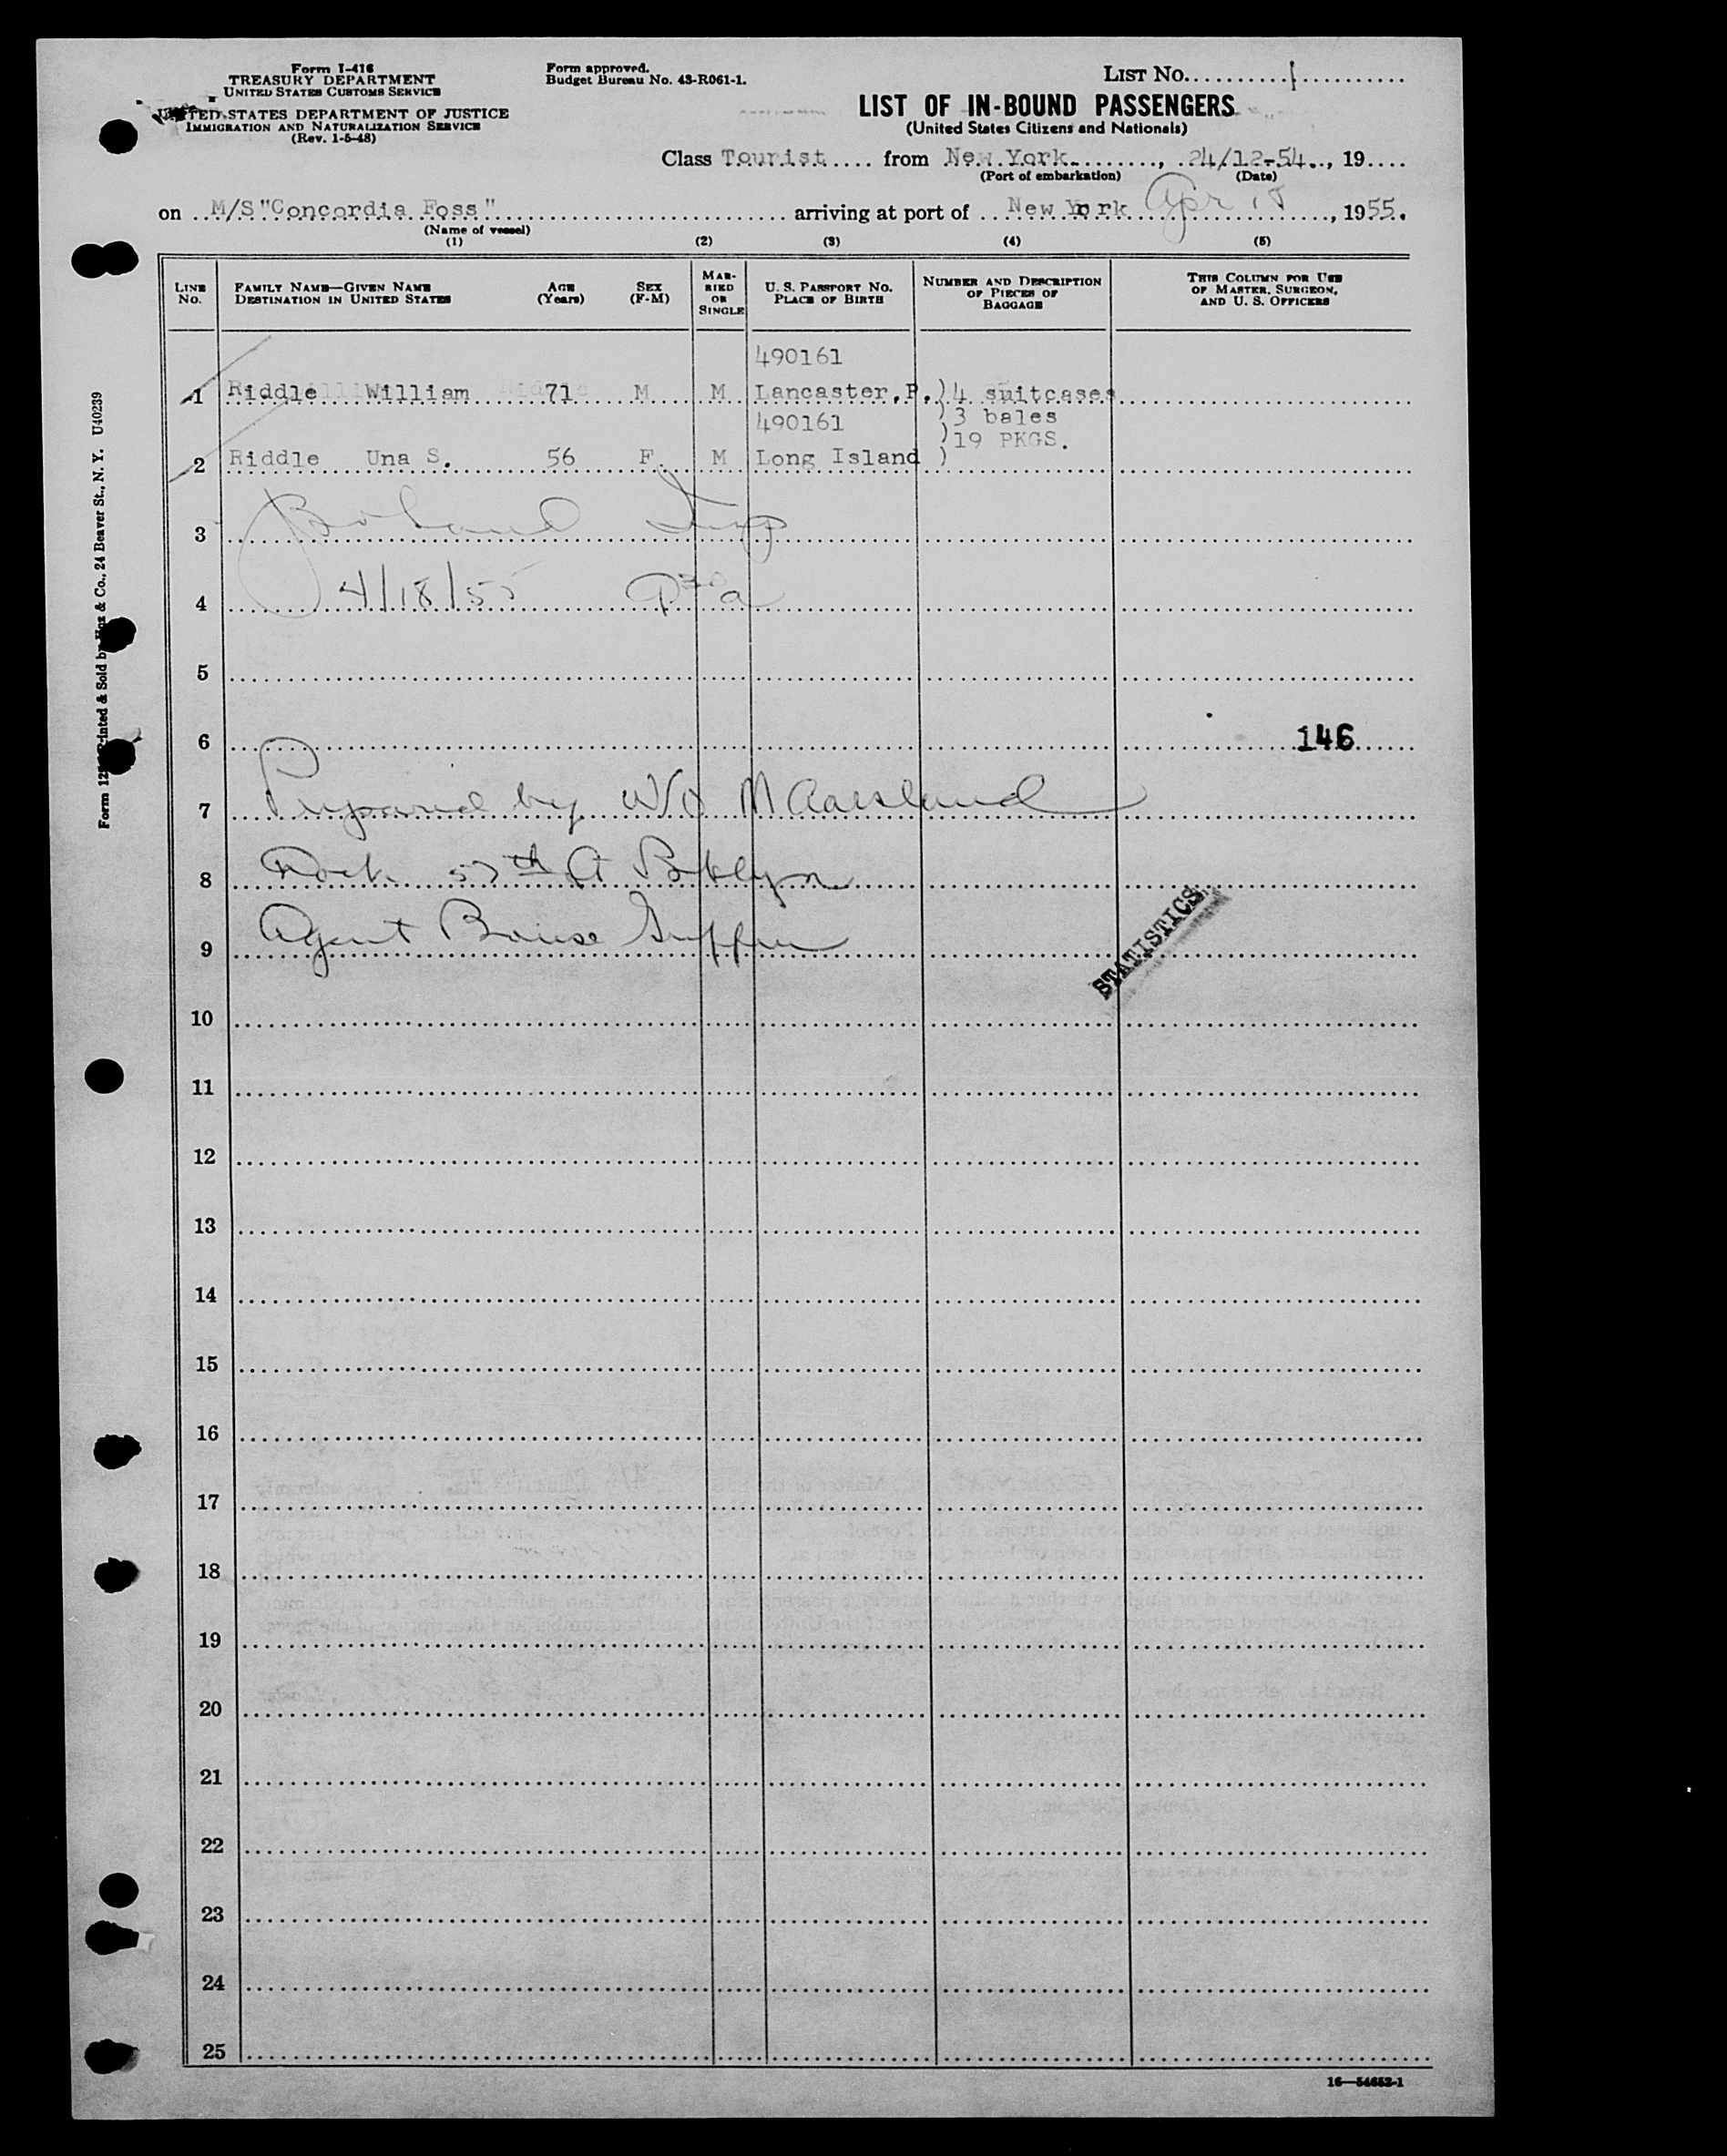 Form I-416
TREASURY DEPARTMENT
UNITED STATES CUSTOMS SERVICE
UNITED STATES DEPARTMENT OF JUSTICE
IMMIGRATION AND NATURALIZATION SERVICE
(Rev. 1-5-48)
Form approved.
Budget Bureau No. 43-R061-1.
LIST No. 1
LIST OF IN-BOUND PASSENGERS
(United States Citizens and Nationals)
Class Tourist from New York, 24/12-54, 19
(Port of embarkation) (Date)
on M/S "Concordia Foss" arriving at port of New York Apr 18, 1955.
(Name of vessel)
(1) (2) (3) (4) (5)
LINE No. FAMILY NAME—GIVEN NAME DESTINATION IN UNITED STATES AGE (Years) SEX (F-M) MARRIED OR SINGLE U. S. PASSPORT No. PLACE OF BIRTH NUMBER AND DESCRIPTION OF PIECES OF BAGGAGE THIS COLUMN FOR USE OF MASTER, SURGEON, AND U. S. OFFICERS
490161
1 Riddle William 71 M M Lancaster,P. )4 suitcases
490161 )3 bales
)19 PKGS.
2 Riddle Una S. 56 F M Long Island )
3 Boland Insp
4 4/18/55
5
6 146
7 Prepared by W/O M Aarsland
8 Dock 57th St Bklyn
9 Agent Boise Griffin
STATISTICS
10
11
12
13
14
15
16
17
18
19
20
21
22
23
24
25
16—54652-1
Printed & Sold by & Co., 24 Beaver St., N. Y. U40239